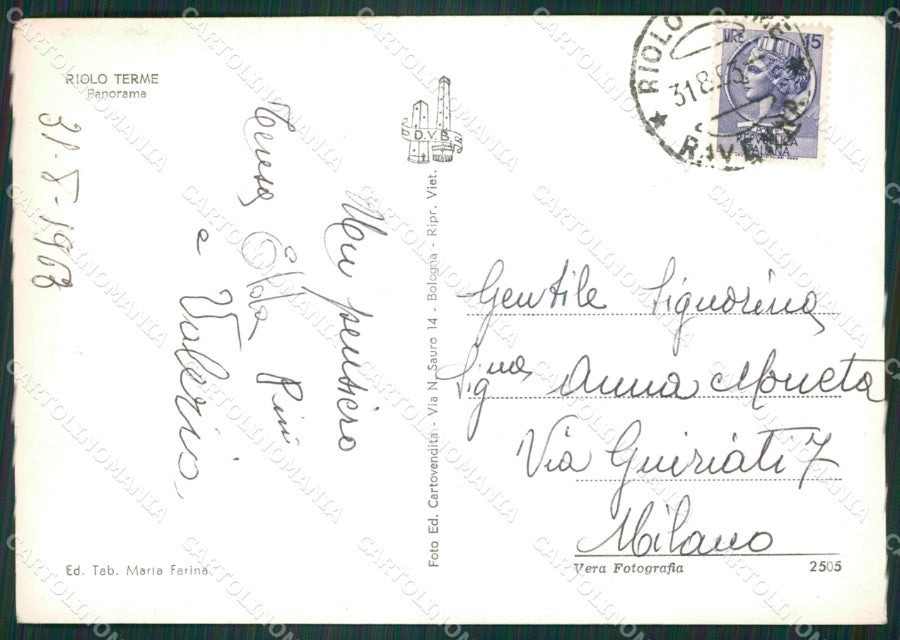 RIOLO TERME
Panorama
31-8-1963
Un pensiero
Pini
Teresa Elda
e Valerio
D.V.B.
Foto Ed. Cartovendita - Via N. Sauro 14 - Bologna - Ripr. Viet.
RIOLO TERME
31.8.63
LIRE 15
REPVBBLICA
ITALIANA
Gentile Signorina
Sig.na Anna Moneta
Via Guiriati 7
Milano
Ed. Tab. Maria Farina
Vera Fotografia
2505
CARTOLINOMANIA